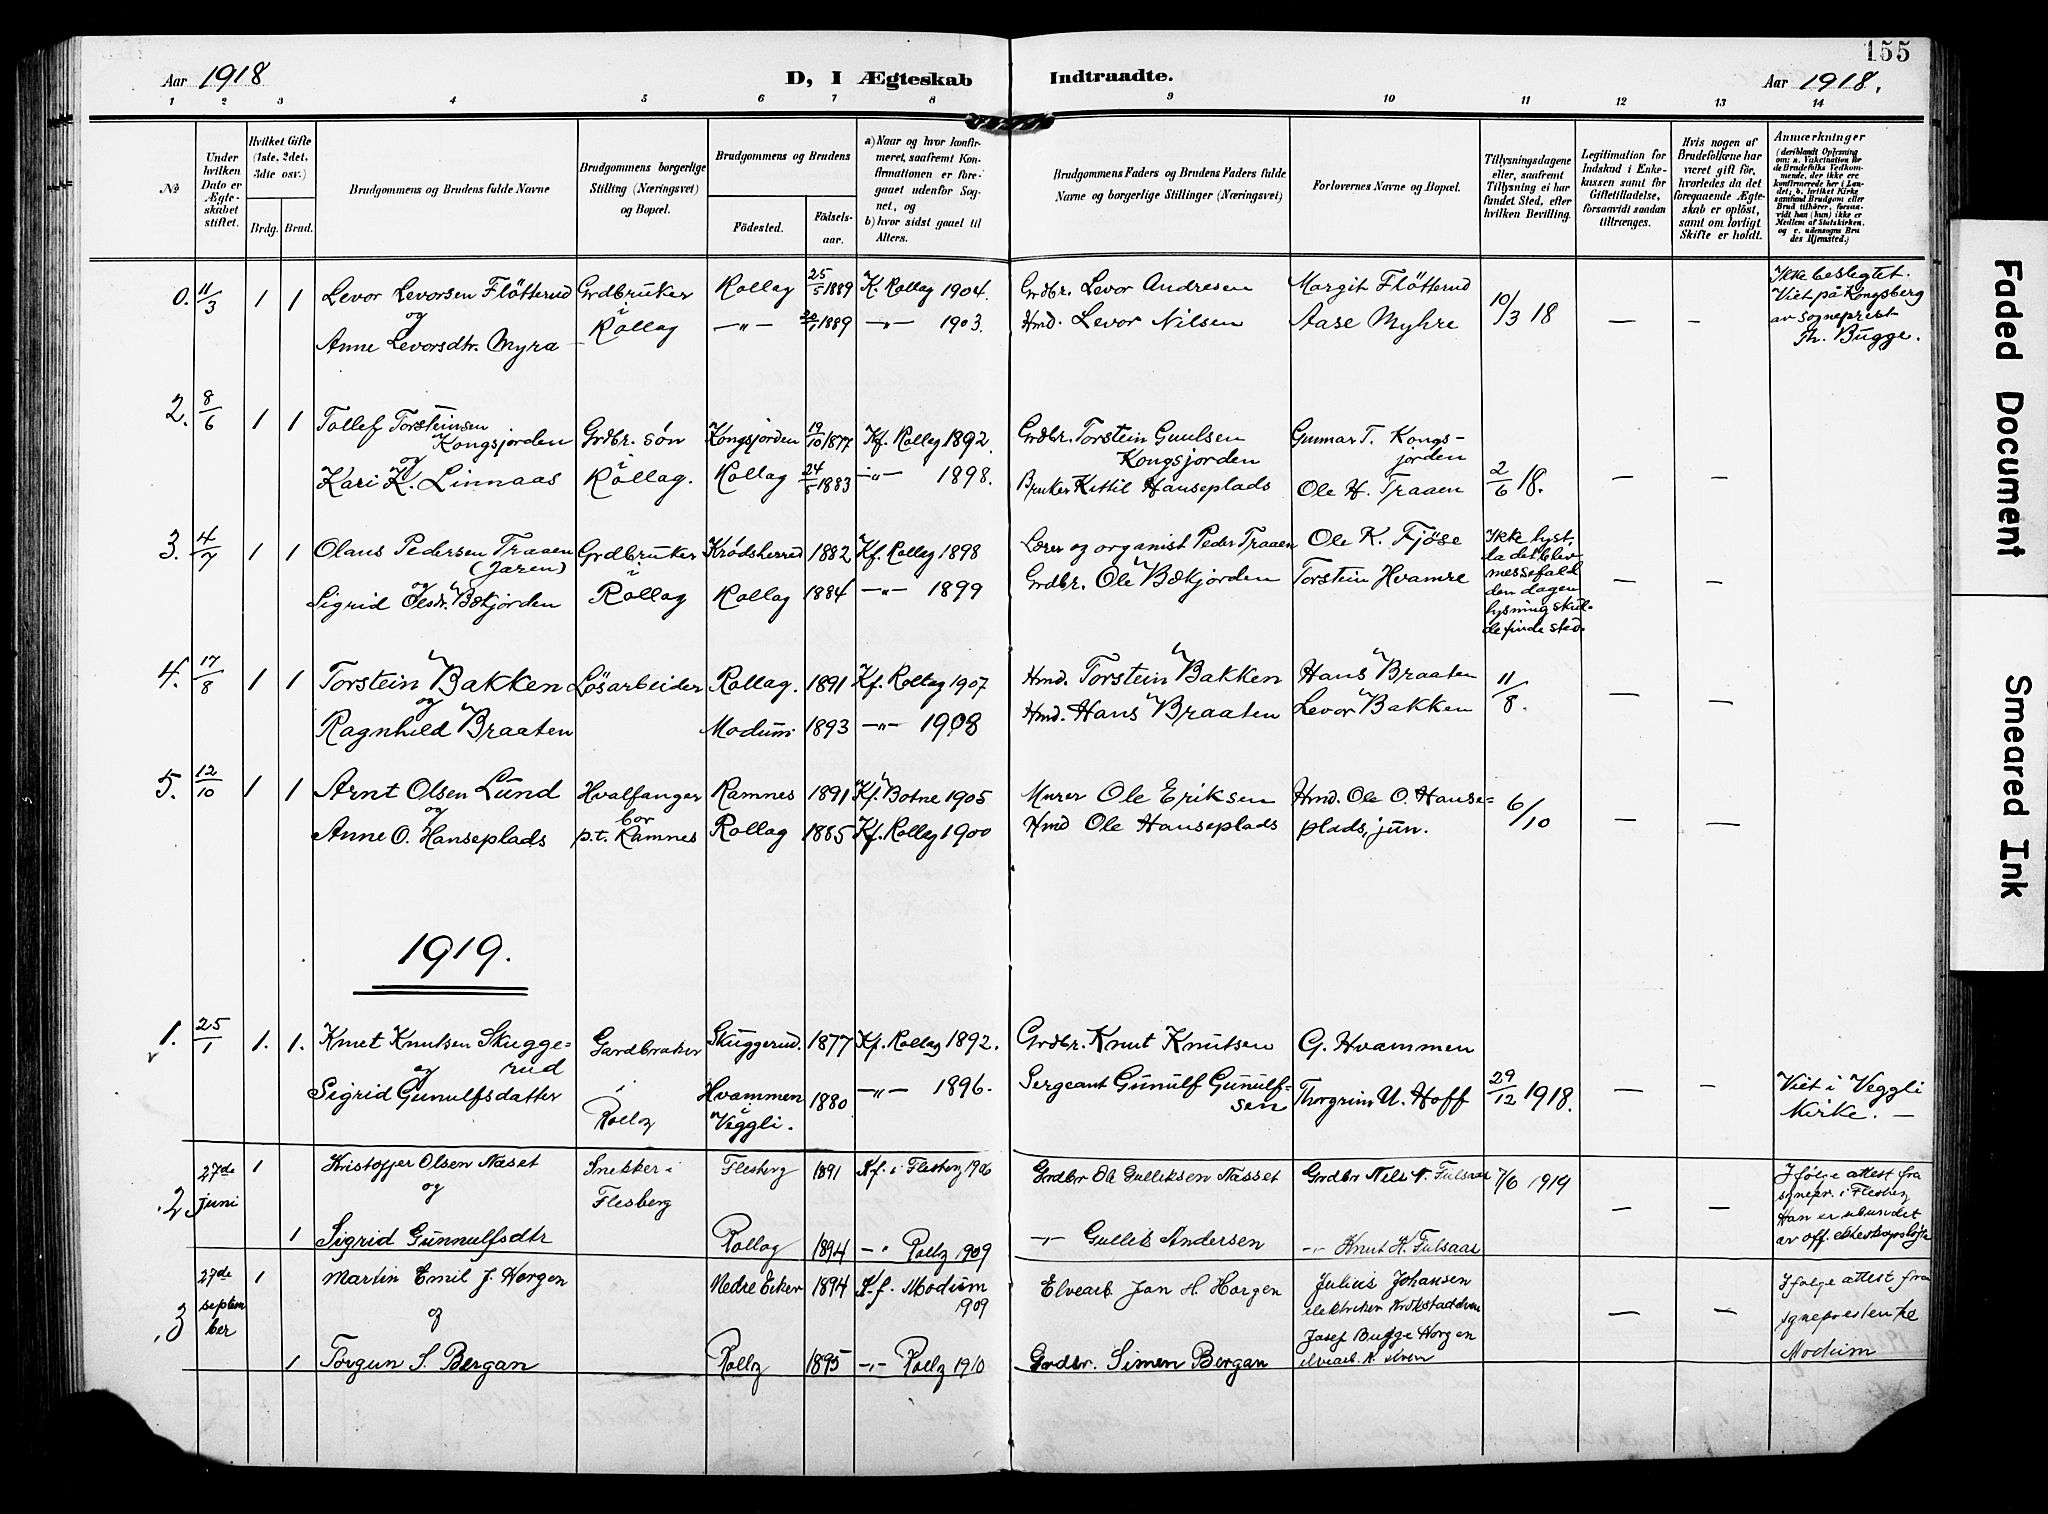 155
Aar 1918
D, I Ægteskab Indtraadte.
Aar 1918.
1 2 3 4 5 6 7 8 9 10 11 12 13 14
No
Under hvilken Dato er Ægteskabet stiftet.
Hvilket Gifte (1ste, 2det, 3die osv.)
Brdg. Brud.
Brudgommens og Brudens fulde Navne
Brudgommens borgerlige Stilling (Næringsvei) og Bopæl.
Brudgommens og Brudens
Fødested.
Fødselsaar.
a) Naar og hvor konfirmeret, saafremt Konfirmationen er foregaaet udenfor Sognet, og
b) hvor sidst gaaet til Alters.
Brudgommens Faders og Brudens Faders fulde Navne og borgerlige Stillinger (Næringsvei)
Forlovernes Navne og Bopæl.
Tillysningsdagene eller, saafremt Tillysning ei har fundet Sted, efter hvilken Bevilling.
Legitimation for Indskud i Enkekassen samt for Giftetilladelse, forsaavidt saadan tiltrænges.
Hvis nogen af Brudefolkene har været gift før, hvorledes da det foregaaende Ægteskab er opløst, samt om lovligt Skifte er holdt.
Anmærkninger
(deriblandt Oplysning om: a. Vakcination for de Brudefolks Vedkommende, der ikke ere konfirmerede her i Landet; b. hvilket Kirkesamfund Brudgom eller Brud tilhører, forsaavidt han (hun) ikke er Medlem af Statskirken, og c. udensogns Brudes Hjemsted.)
0. 11/3 1 1 Levor Levorsen Fløtterud Grdbruker Rollag 25/5 1889 K. Rollag 1904. Grdbr. Levor Andresen Margit Fløtterud 10/3 18 — — Ikke beslegtet.
og i Viet på Kongsberg
Anne Levorsdtr. Myra Rollag —"— 20/1 1889 —"— 1903. Hmd. Levor Nilsen Aase Myhre av sogneprest
Th. Bugge.
2. 8/6 1 1 Tollef Torsteinsen Kongsjorden Grdbr. søn Kongsjorden 19/10 1877 Kf. Rollag 1892. Grdbr. Torstein Guulsen Kongsjorden Gunnar T. Kongsjorden
og i
Kari K. Linnaas Rollag. Rollag 24/5 1883 —"— 1898. Bruker Kittil Hanseplads Ole H. Traaen 2/6 18. — —
3. 4/7 1 1 Olaus Pedersen Traaen (Jaren) Grdbruker Krødsherred 1882 Kf. Rollag 1898 Lærer og organist Peder Traaen Ole K. Fjøse Ikke lyst, da det blev messefald den dagen lysning skulde finde sted. — —
og i
Sigrid Olsdr. Bækjorden Rollag Rollag 1884 —"— 1899 Grdbr. Ole Bækjorden Torstein Hvamre
4. 17/8 1 1 Torstein Bakken Løsarbeider Rollag. 1891 Kf. Rollag 1907 Hmd. Torstein Bakken Hans Braaten 11/8. — —
og
Ragnhild Braaten Modum 1893 —"— 1908 Hmd. Hans Braaten Levor Bakken
5. 12/10 1 1 Arnt Olsen Lund Hvalfanger Ramnes 1891 Kf. Botne 1905 Murer Ole Eriksen Hmd. Ole O. Hanse= 6/10 — —
og bor
Anne O. Hanseplads p.t. Ramnes Rollag 1885 Kf. Rollag 1900 Hmd Ole Hanseplads plads, jun.
1919.
1. 25/1 1. 1. Knut Knutsen Skugge= Gardbruker Skuggerud. 1877 Kf. Rollag 1892. Grdbr. Knut Knutsen G. Hvammen
og rud i
Sigrid Gunulfsdatter Rollag Hvammen i Veggli. 1880 —"— 1896. Sergeant Gunulf Gunulfsen Thorgrim U. Hoff 29/12 1918. — — Viet i Veggli Kirke. —
2 27de juni 1 Kristoffer Olsen Næset Snekker i Flesberg Flesberg 1891 Kf. i Flesberg 1906 Grdbr Ole Gulliksen Næsset Grdbr Nils N. Fulsaas 7/6 1919 — — Ifølge attest fra
og sognepr. i Flesberg
Han er ubundet
1 Sigrid Gunnulfsdtr Rollag 1894 —"— Rollag 1909 —"— Gullik Andersen —"— Knut K. Fulsaas
3 27de september 1 Martin Emil J. Horgen Nedre Eiker 1894 Kf. Modum 1909 Elvearb Jan H. Horgen Julius Johansen — — Ifølge attest fra
og elektriker Krokstadelven sognepresten til
Josef Bugge Horgen Modum
1 Torgun S. Bergan Rollag 1895 —"— Rollag 1910 Grdbr. Simen Bergan
Faded Document
Smeared Ink